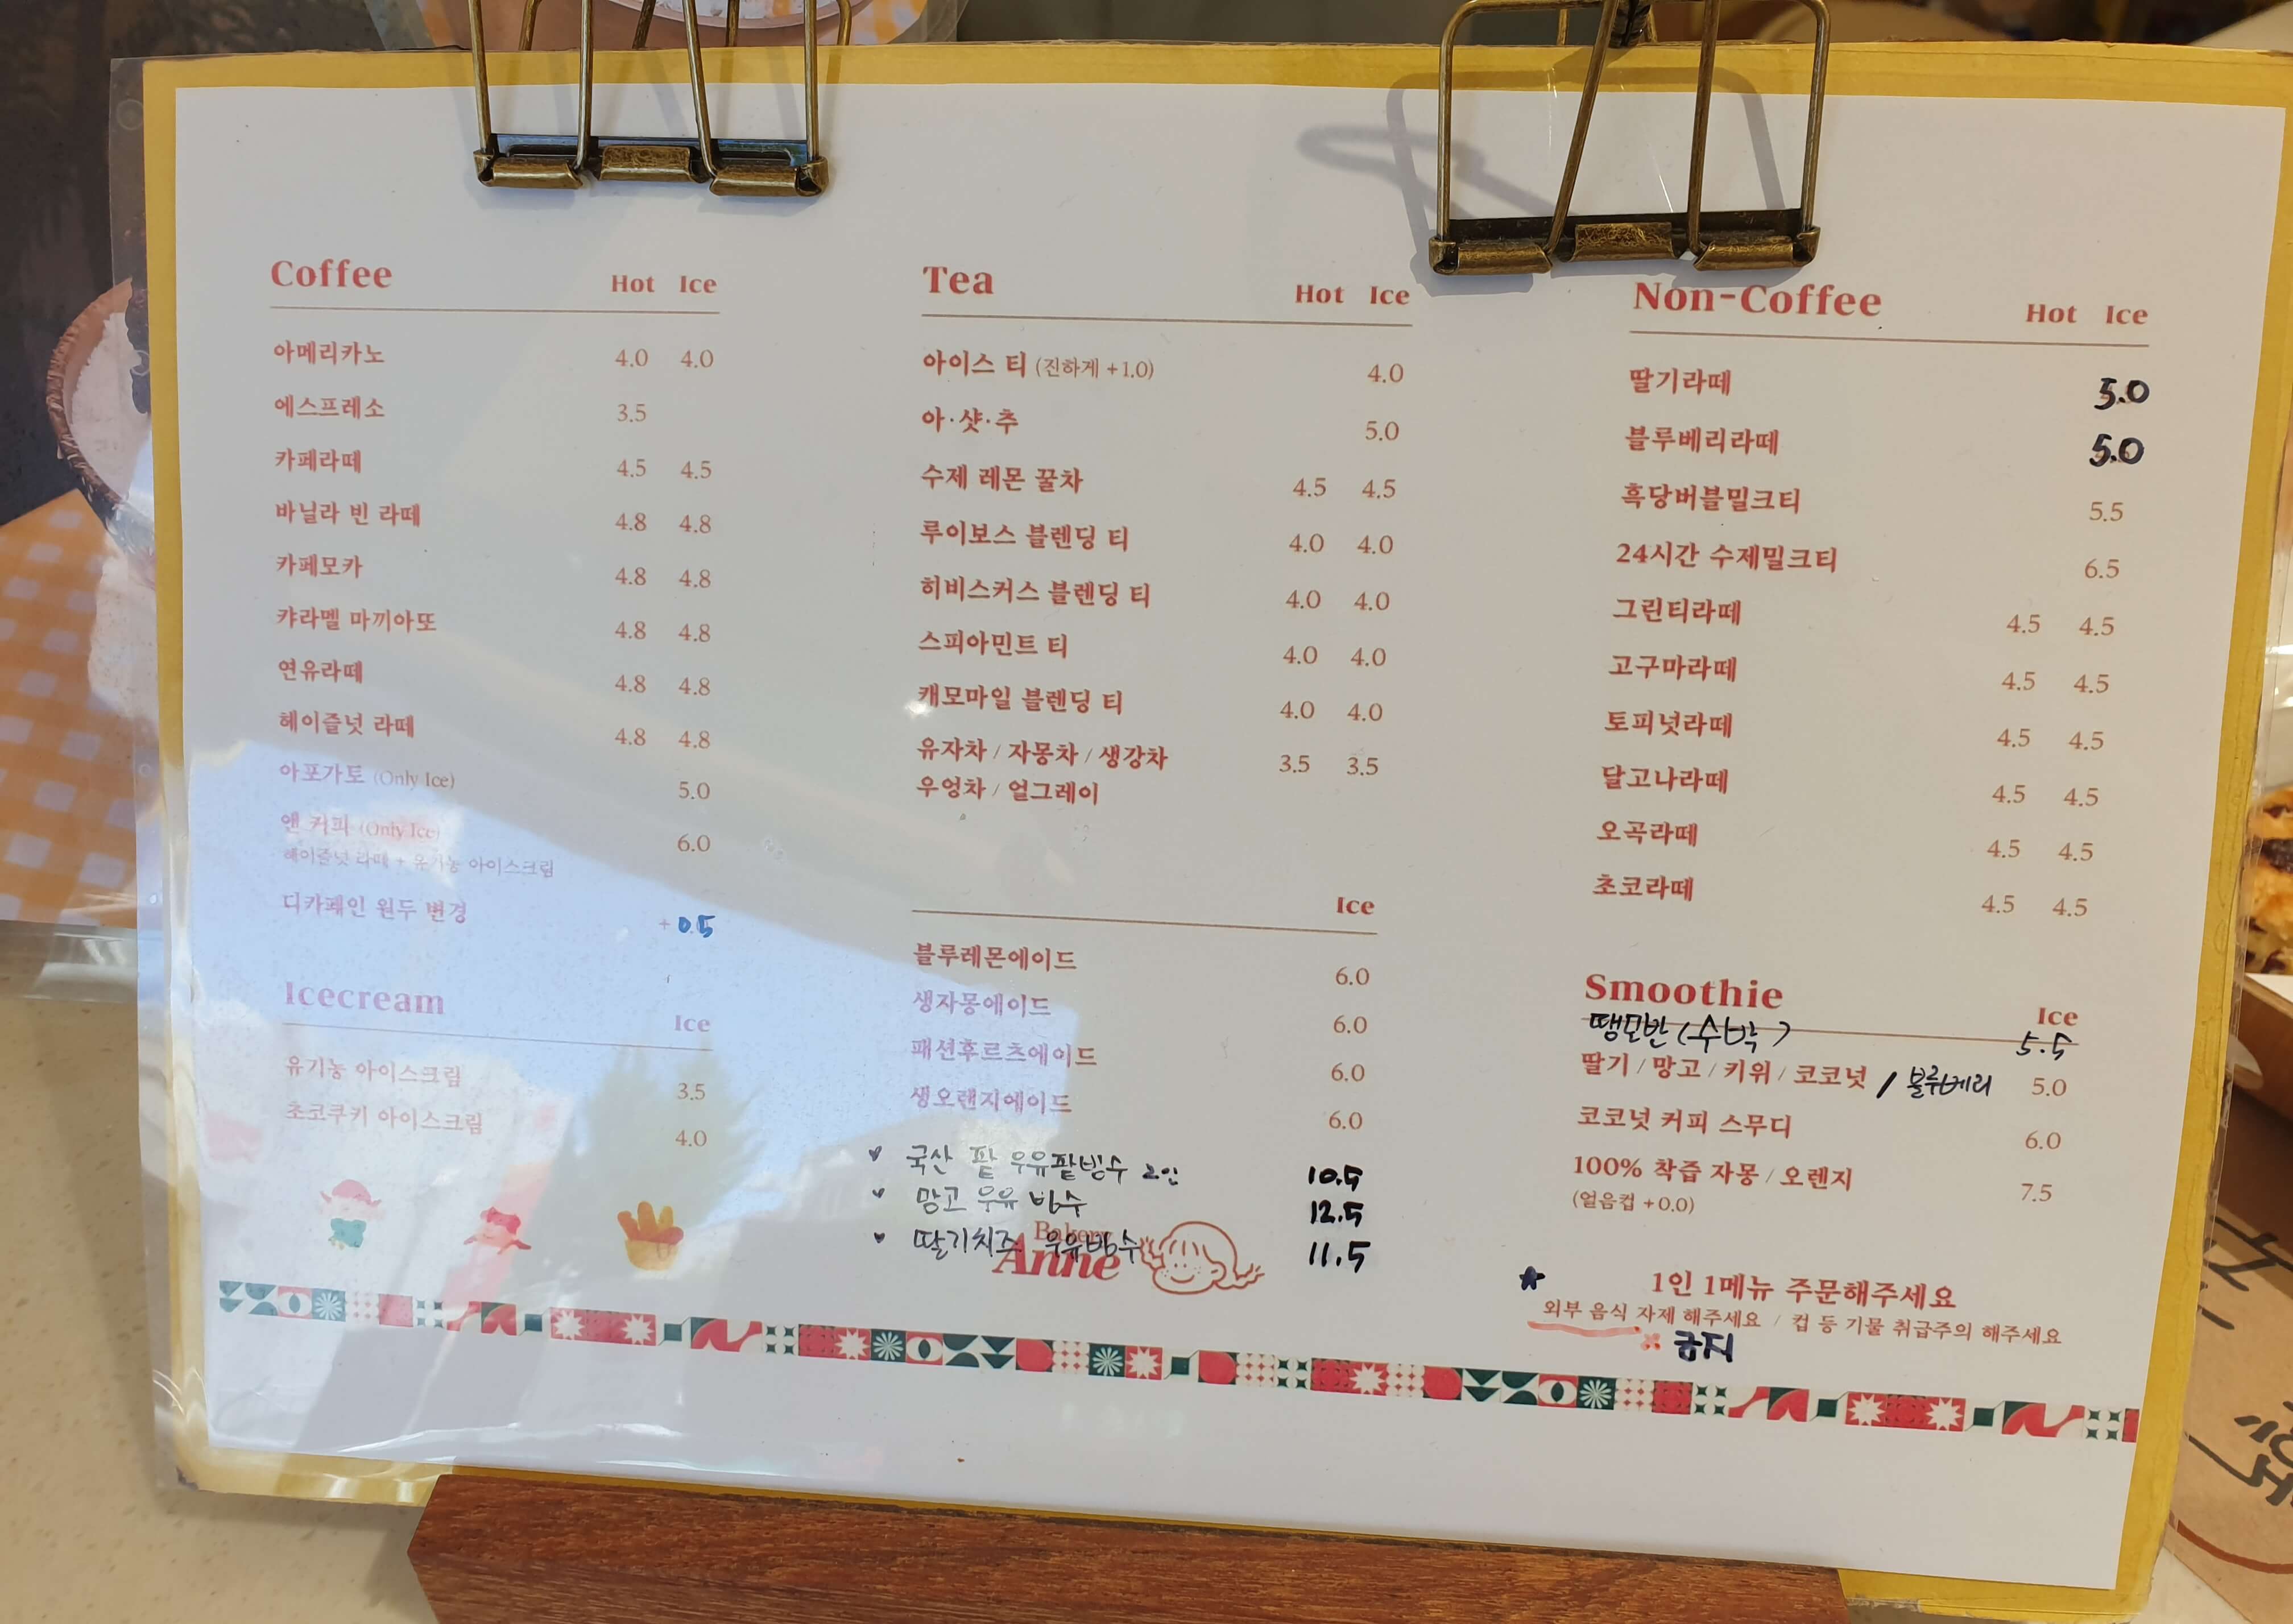 Coffee Hot Ice
아메리카노 4.0 4.0
에스프레소 3.5
카페라떼 4.5 4.5
바닐라 빈 라떼 4.8 4.8
카페모카 4.8 4.8
캬라멜 마끼아또 4.8 4.8
연유라떼 4.8 4.8
헤이즐넛 라떼 4.8 4.8
아포가토 (Only Ice) 5.0
앤 커피 (Only Ice) 6.0
헤이즐넛 라떼 + 유기농 아이스크림
디카페인 원두 변경 + 0.5
Icecream
Ice
유기농 아이스크림 3.5
초코쿠키 아이스크림 4.0
Tea Hot Ice
아이스 티 (진하게 +1.0) 4.0
아·샷·추 5.0
수제 레몬 꿀차 4.5 4.5
루이보스 블렌딩 티 4.0 4.0
히비스커스 블렌딩 티 4.0 4.0
스피아민트 티 4.0 4.0
캐모마일 블렌딩 티 4.0 4.0
유자차 / 자몽차 / 생강차 3.5 3.5
우엉차 / 얼그레이
Ice
블루레몬에이드 6.0
생자몽에이드 6.0
패션후르츠에이드 6.0
생오랜지에이드 6.0
♥ 국산 팥 우유팥빙수 2인 10.5
♥ 망고 우유 빙수 12.5
♥ 딸기치즈 우유빙수 11.5
Bakery
Anne
Non-Coffee Hot Ice
딸기라떼 5.0
블루베리라떼 5.0
흑당버블밀크티 5.5
24시간 수제밀크티 6.5
그린티라떼 4.5 4.5
고구마라떼 4.5 4.5
토피넛라떼 4.5 4.5
달고나라떼 4.5 4.5
오곡라떼 4.5 4.5
초코라떼 4.5 4.5
Smoothie Ice
땡모반 (수박) 5.5
딸기 / 망고 / 키위 / 코코넛 / 블루베리 5.0
코코넛 커피 스무디 6.0
100% 착즙 자몽 / 오렌지 7.5
(얼음컵 +0.0)
★ 1인 1메뉴 주문해주세요
외부 음식 자제 해주세요 / 컵 등 기물 취급주의 해주세요
금지